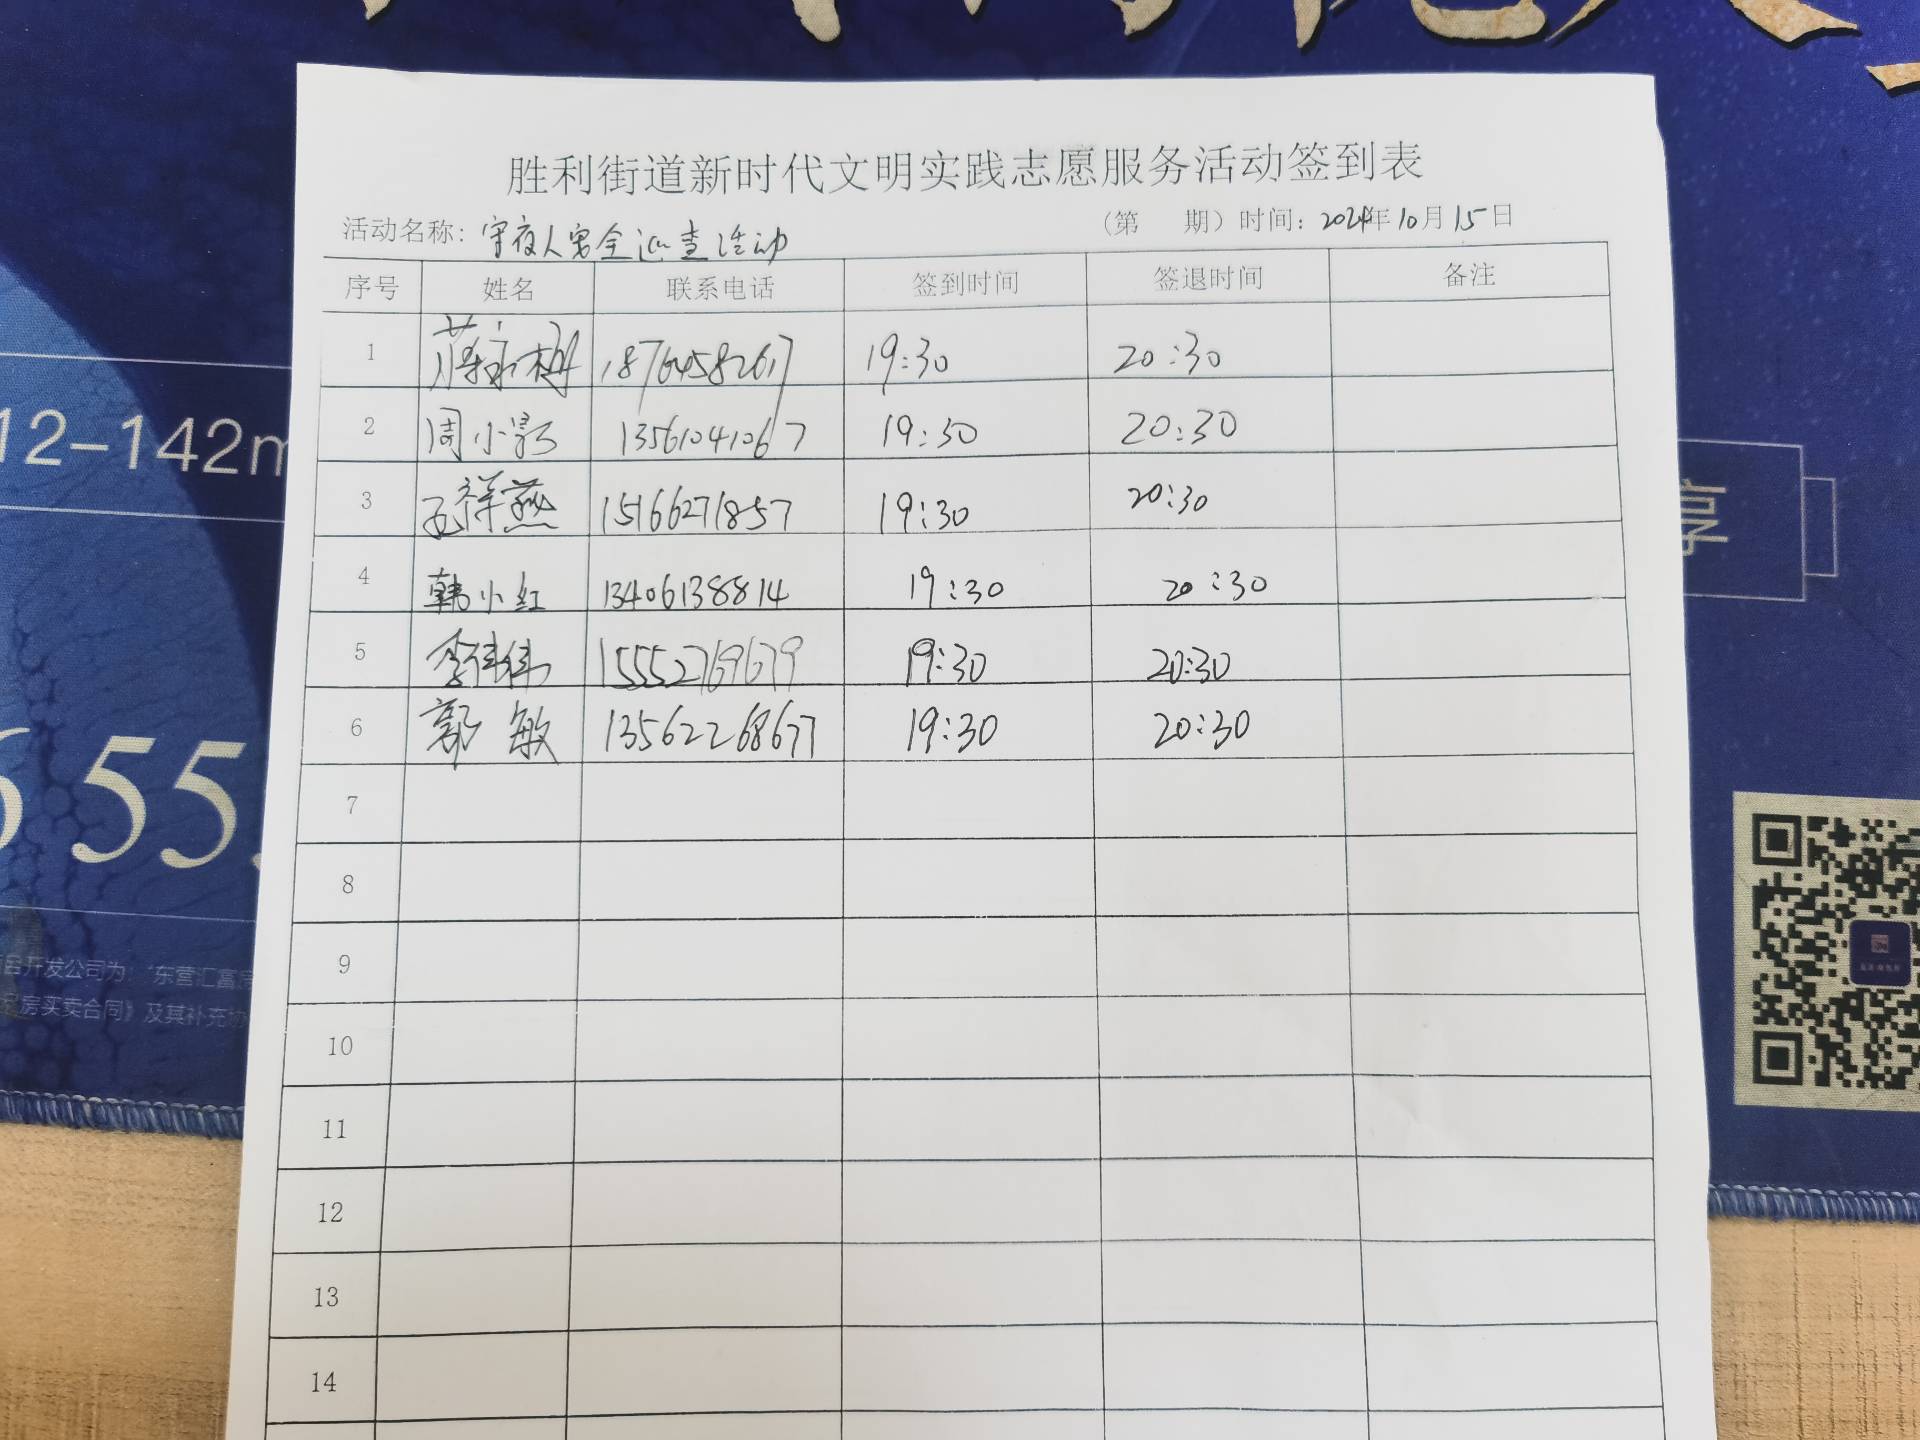 胜利街道新时代文明实践志愿服务活动签到表
活动名称：守夜人安全巡查活动 （第 期）时间：2024年10月15日
序号 姓名 联系电话 签到时间 签退时间 备注
1 18764582617 19:30 20:30
2 周小影 13561041067 19:30 20:30
3 孟祥燕 15166271857 19:30 20:30
4 韩小红 13406138814 19:30 20:30
5 李伟伟 15552769679 19:30 20:30
6 郭敏 13562268677 19:30 20:30
7
8
9
10
11
12
13
14
12-142m
655
享
开发公司为："东营汇富房
房买卖合同》及其补充协